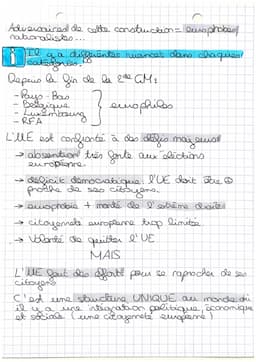 Adversaires de cette construction = europhobes
nationalistes...
Il y a différentes nuances dans chaque
catégories.
Depuis la fin de la 2nde GM :
- Pays-Bas
- Belgique
- Luxembourg
- RFA
europhiles
L'UE est confronté à des défis majeurs
→ abstention très forte aux élections
européenne.
→ déficit démocratique, l'UE doit être ⊕
proche de ses citoyens.
→ europhobie + montée de l'extrême droite
→ citoyenneté européenne trop limitée.
→ Volonté de quitter l'UE
MAIS
L'UE fait des efforts pour se raprocher de ses
citoyens
C'est une structure UNIQUE au monde où
il y a une intégration politique, économique
et sociale (une citoyenneté européenne)